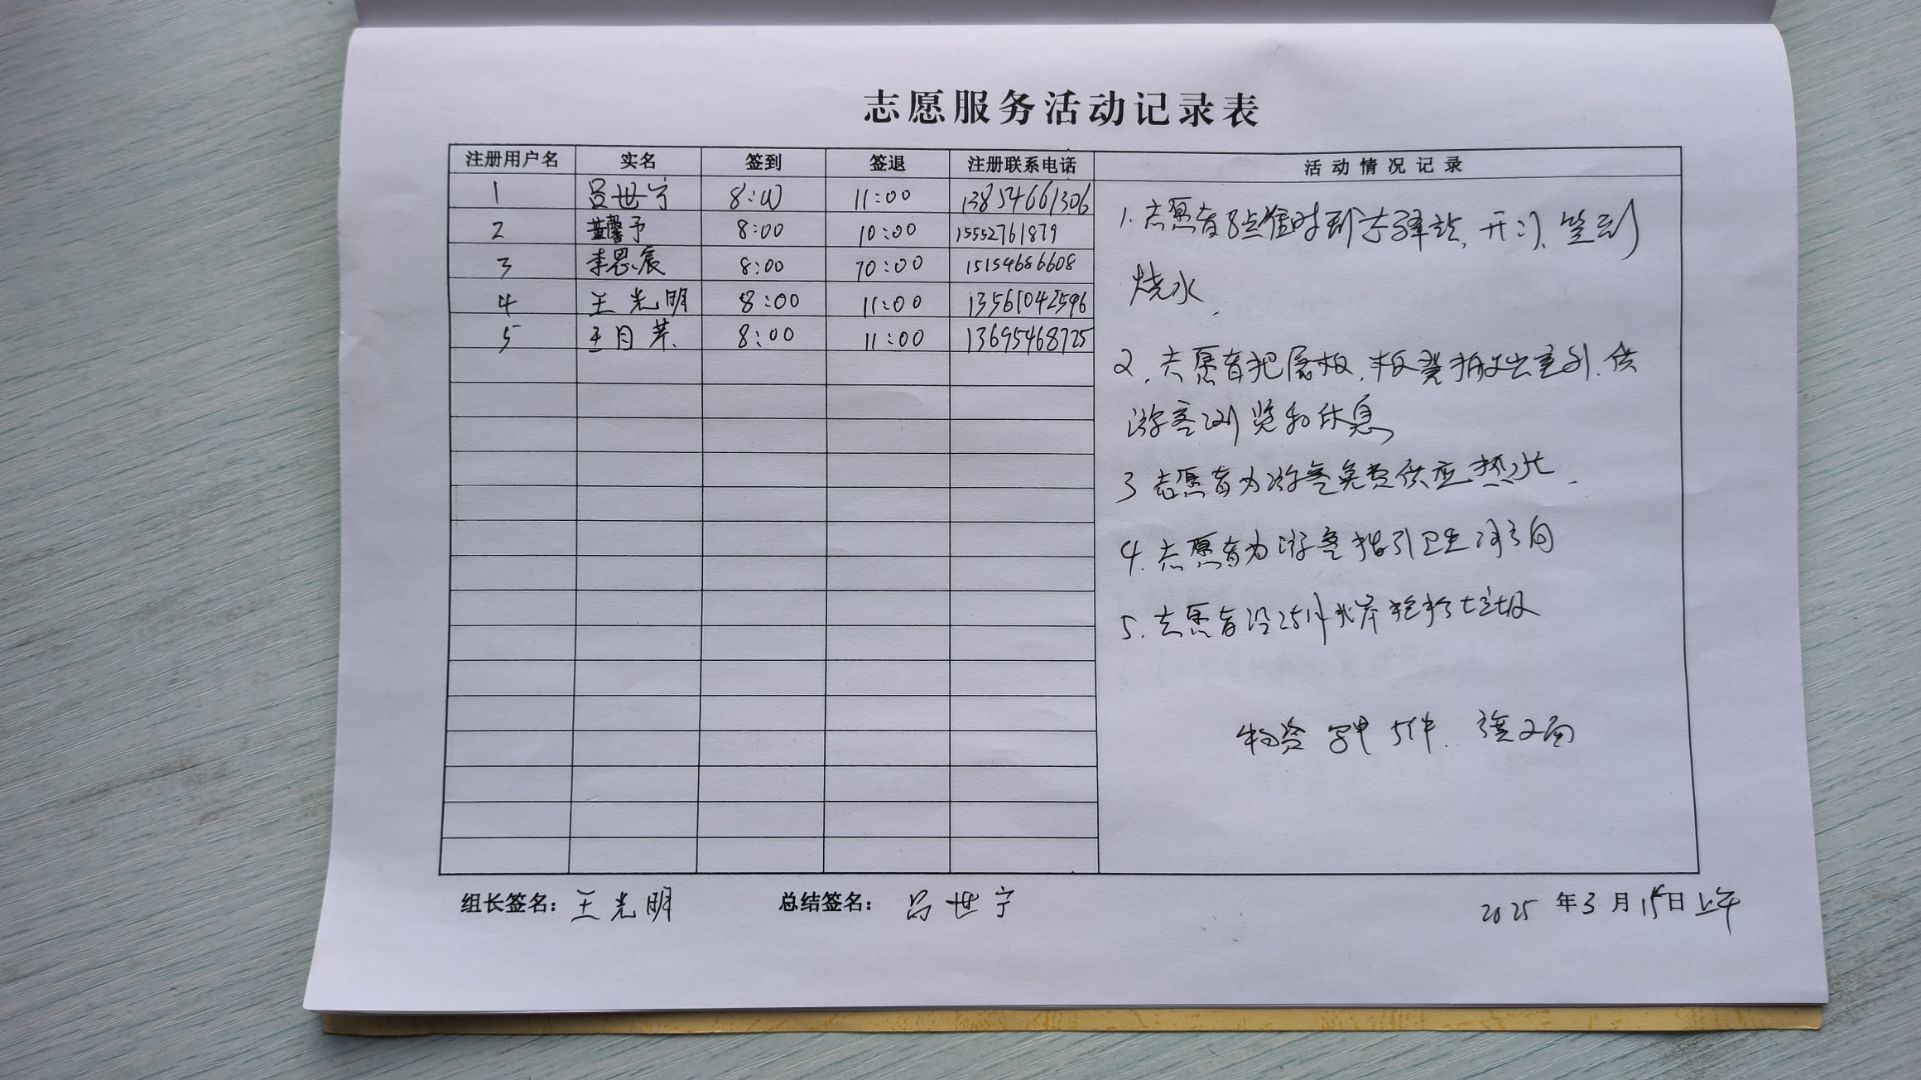 志愿服务活动记录表
注册用户名 实名 签到 签退 注册联系电话 活动情况记录
1 吕世宁 8:00 11:00 13854661306
2 馨予 8:00 10:00 15552761879
3 李恩宸 8:00 10:00 15154686608
4 王光明 8:00 11:00 13561042596
5 王月苹 8:00 11:00 13695468725
1.志愿者8点准时到达驿站,开门、签到
烧水.
2.志愿者把展板,板凳搬出室外.供
游客浏览和休息
3 志愿者为游客免费供应热水.
4.志愿者为游客指引卫生间方向
5.志愿者沿河水岸捡拾垃圾
物资 5件. 2面
组长签名: 王光明 总结签名: 吕世宁 2025年3月15日上午